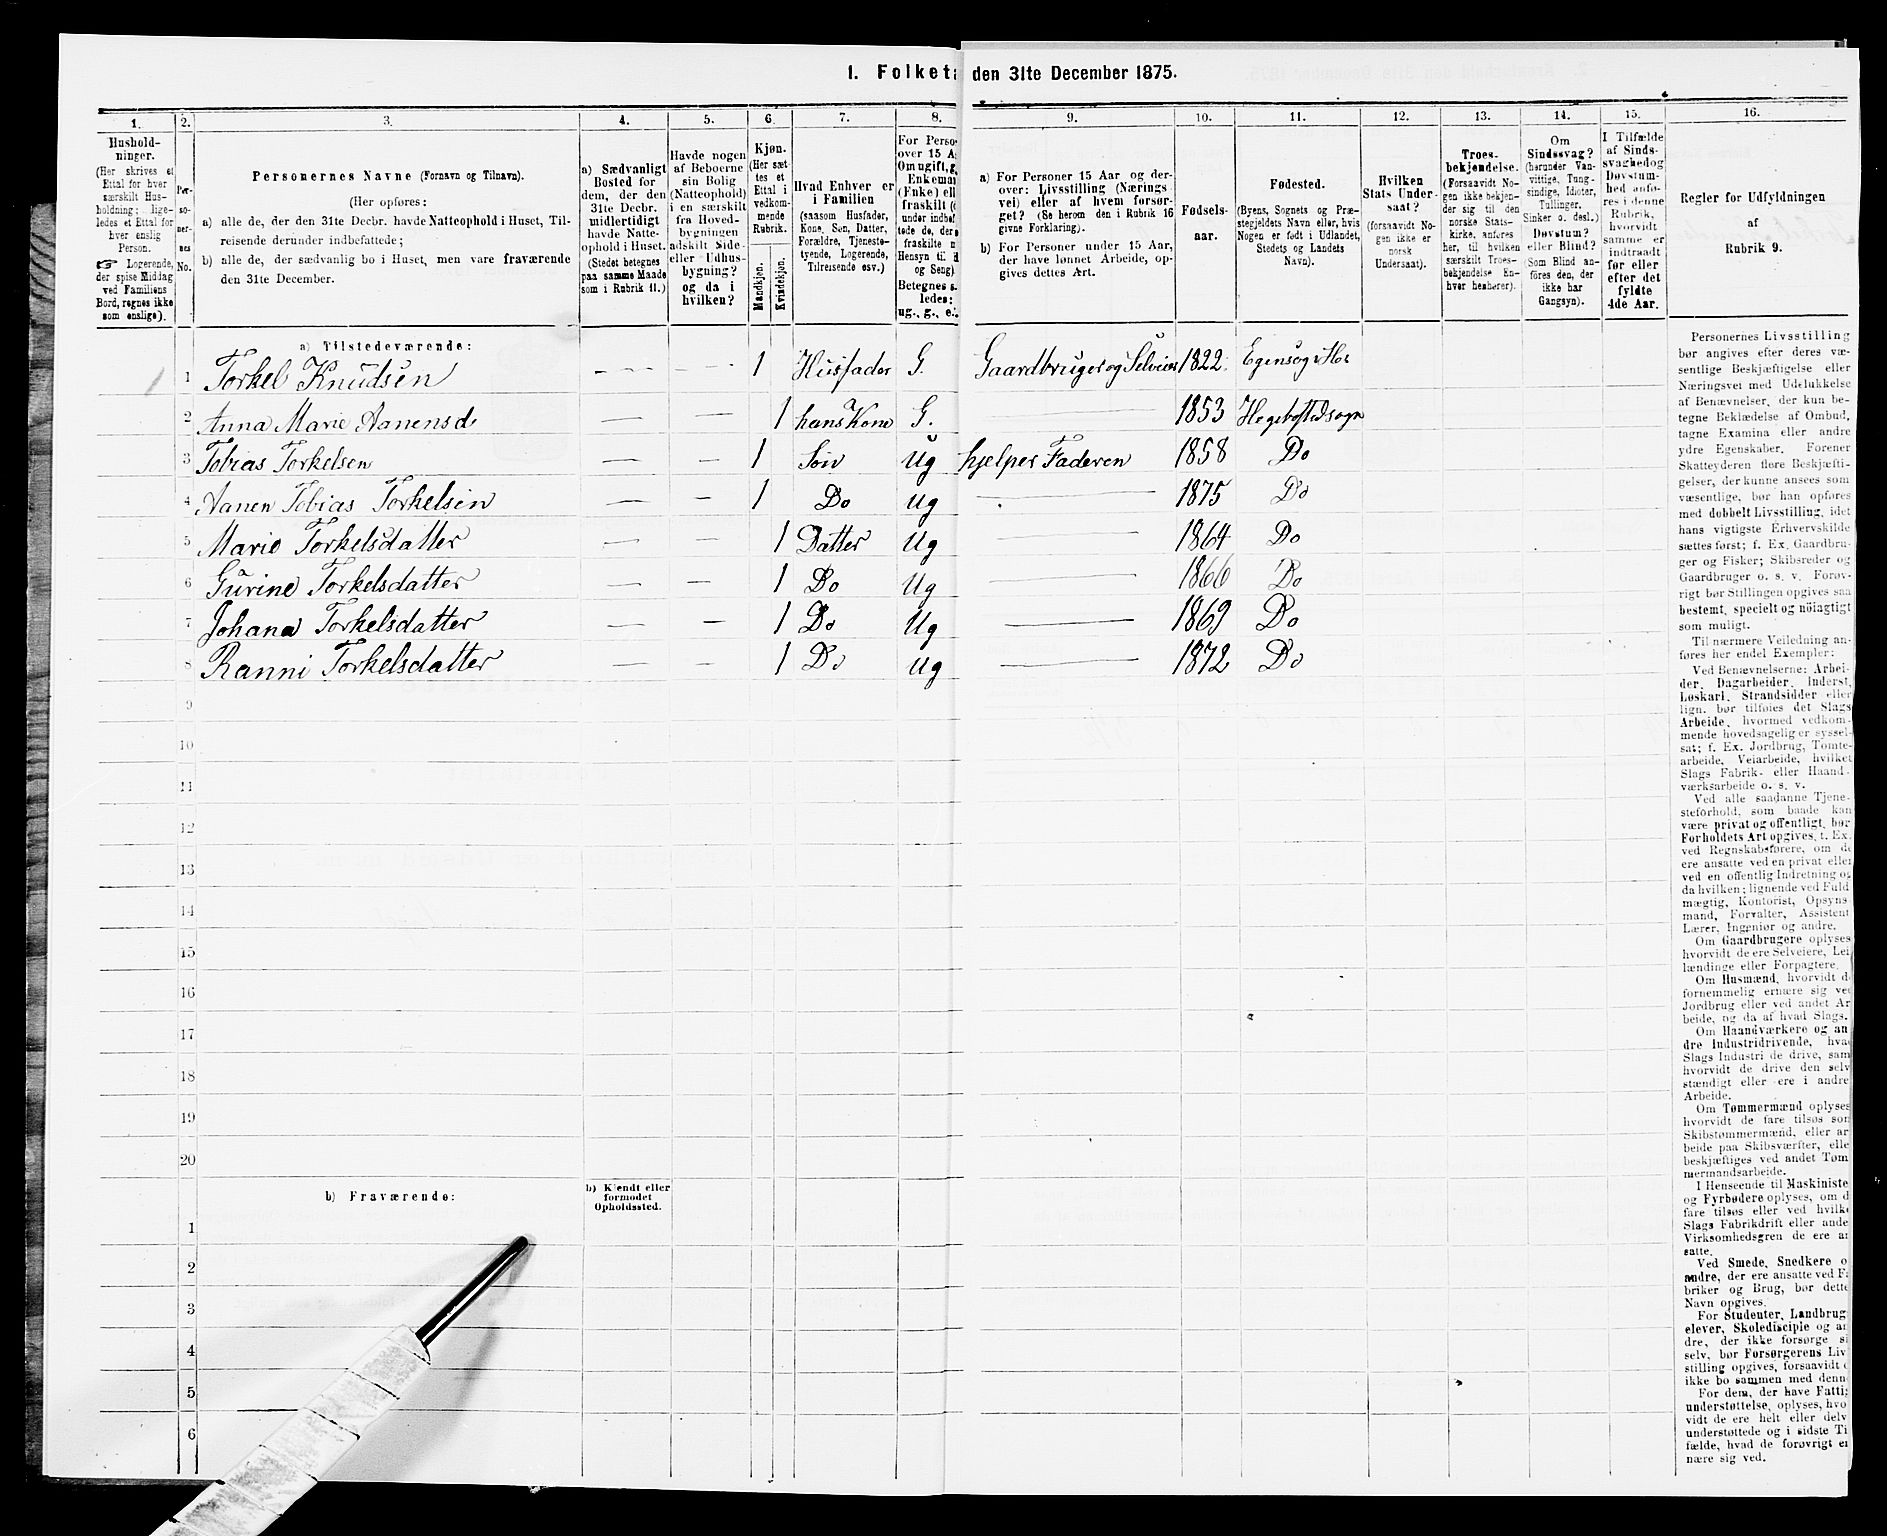 1. Folketæ den 31te December 1875.
1. 2. 3. 4. 5. 6. 7. 8. 9. 10. 11. 12. 13. 14. 15. 16.
Hushold-
ninger.
(Her skrives et
Ettal for hver
særskilt Hus-
holdning; lige-
ledes et Ettal for
hver enslig
Person.
☞ Logerende,
der spise Middag
ved Familiens
Bord, regnes ikke
som enslige).
Per-
so-
ner-
nes
No.
Personernes Navne (Fornavn og Tilnavn).
(Her opføres:
a) alle de, der den 31te Decbr. havde Natteophold i Huset, Til-
reisende derunder indbefattede;
b) alle de, der sædvanlig bo i Huset, men vare fraværende
den 31te December.
a) Sædvanligt
Bosted for
dem, der den
31te Decbr.
midlertidigt
havde Natte-
ophold i Huset.
(Stedet betegnes
paa samme Maade
som i Rubrik 11.)
Havde nogen
af Beboerne
sin Bolig
(Natteophold)
i en særskilt
fra Hoved-
bygningen
adskilt Side-
eller Udhus-
bygning?
og da i
hvilken?
Kjøn.
(Her sæt-
tes et
Ettal i
vedkom-
mende
Rubrik.
Mandkjøn.
Kvindekjøn.
Hvad Enhver er
i Familien
(saasom Husfader,
Kone, Søn, Datter,
Forældre, Tjeneste-
tyende, Logerende,
Tilreisende osv.)
For Perso
over 15 A
Om ugift, g
Enkeman
(Enke) ell
fraskilt (d
under indbef
tede de, der
fraskilte
Hensyn til
og Seng)
Betegnes s
ledes:
ug., g., e.
a) For Personer 15 Aar og der-
over: Livsstilling (Nærings-
vei) eller af hvem forsør-
get? (Se herom den i Rubrik 16
givne Forklaring).
b) For Personer under 15 Aar,
der have lønnet Arbeide, op-
gives dettes Art.
Fødsels-
aar.
Fødested.
(Byens, Sognets og Præ-
stegjeldets Navn eller, hvis
Nogen er født i Udlandet,
Stedets og Landets
Navn).
Hvilken
Stats Under-
saat?
(forsaavidt No-
gen ikke er
norsk
Undersaat).
Troes-
bekjendelse.
(Forsaavidt No-
gen ikke bekjen-
der sig til den
norske Stats-
kirke, anføres
her, til hvilken
særskilt Troes-
bekjendelse En-
hver henhører).
Om
Sindssvag?
(herunder Van-
vittige, Tung-
sindige, Idioter,
Tullinger,
Sinker o. desl.)
Døvstum?
eller Blind?
(Som Blind an-
føres den, der
ikke har
Gangsyn).
I Tilfælde
af Sinds-
svaghed og
Døvstum-
hed anfø-
res i denne
Rubrik,
hvorvidt
samme er
indtraadt
før eller
efter det
fyldte
4de Aar.
Regler for Udfyldningen
af
Rubrik 9.
a) Tilstedeværende:
1 1 Torkel Knudsen 1 Husfader G. Gaardbruger og Selveier 1822. Egensogn
2 Anna Marie Aanensd 1 hans Kone G. 1853 Hegebostadsogn
3 Tobias Torkelsen 1 Søn Ug hjelper Faderen 1858 Do
4 Aanen Tobias Torkelsen 1 Do Ug 1875 Do
5 Marie Torkelsdatter 1 Datter Ug 1864 Do
6 Gurine Torkelsdatter 1 Do Ug 1866 Do
7 Johana Torkelsdatter 1 Do Ug 1869 Do
8 Ranni Torkelsdatter 1 Do Ug 1872 Do
9
10
11
12
13
14
15
16
17
18
19
20
b) Fraværende:
b) Kjendt eller
formodet
Opholdssted.
1
2
3
4
5
6
Personernes Livsstilling
bør angives efter deres væ-
sentlige Beskjæftigelse eller
Næringsvei med Udelukkelse
af Benævnelser, der kun be-
tegne Beklædelse af Ombud,
tagne Examina eller andre
ydre Egenskaber. Forener
Skatteyderen flere Beskjæfti-
gelser, der kunne ansees som
væsentlige, bør han opføres
med dobbelt Livsstilling, idet
hans vigtigste Erhvervskilde
sættes først; f. Ex. Gaardbru-
ger og Fisker; Skibsreder og
Gaardbruger o. s. v. Forøv-
rigt bør Stillingen opgives saa
bestemt, specielt og nöiagtigt
som muligt.
Til nærmere Veiledning an-
føres her endel Exempler:
Ved Benævnelserne: Arbei-
der, Dagarbeider, Inderst,
Løskarl, Strandsidder eller
lign. bør tilføies det Slags
Arbeide, hvormed vedkom-
mende hovedsagelig er syssel-
sat; f. Ex. Jordbrug, Tomte-
arbeide, Veiarbeide, hvilket
Slags Fabrik- eller Haand-
værksarbeide o. s. v.
Ved alle saadanne Tjene-
steforhold, som baade kan
være privat og offentligt, bør
Forholdets Art opgives, t. Ex.
ved Regnskabsførere, om de
ere ansatte ved en privat eller
ved en offentlig Indretning og
da hvilken; lignende ved Fuld
mægtig, Kontorist, Opsyns-
mand, Forvalter, Assistent
Lærer, Ingeniør og andre.
Om Gaardbrugere oplyses
hvorvidt de ere Selveiere, Lei
lændinge eller Forpagtere.
Om Husmænd, hvorvidt d
fornemmelig ernære sig ve
Jordbrug eller ved andet Ar
beide, og da af hvad Slags.
Om Haandværkere og an
dre Industridrivende, hva
Slags Industri de drive, sam
hvorvidt de drive den selv
stændigt eller ere i andre
Arbeide.
Om Tømmermænd oplyses
hvorvidt de fare tilsøs som
Skibstømmermænd, eller ar
beide paa Skibsværfter, elle
beskjæftiges ved andet Tøm
mermandsarbeide.
I Henseende til Maskiniste
og Fyrbødere oplyses, om d
fare tilsøs eller ved hvilke
Slags Fabrikdrift eller ande
Virksomhedsgren de ere an
satte.
Ved Smede, Snedkere o
andre, der ere ansatte ved Fa
briker og Brug, bør dette
Navn opgives.
For Studenter, Landbrug
elever, Skoledisciple og an
dre, der ikke forsørge si
selv, bør Forsørgerens Liv
stilling opgives, forsaavidt d
ikke bo sammen med denne
For dem, der have Fatti
understøttelse, oplyses, hvo
vidt de ere helt eller delv
understøttede og i sidste Ti
fælde, hvad de forøvrigt er
nære sig ved.